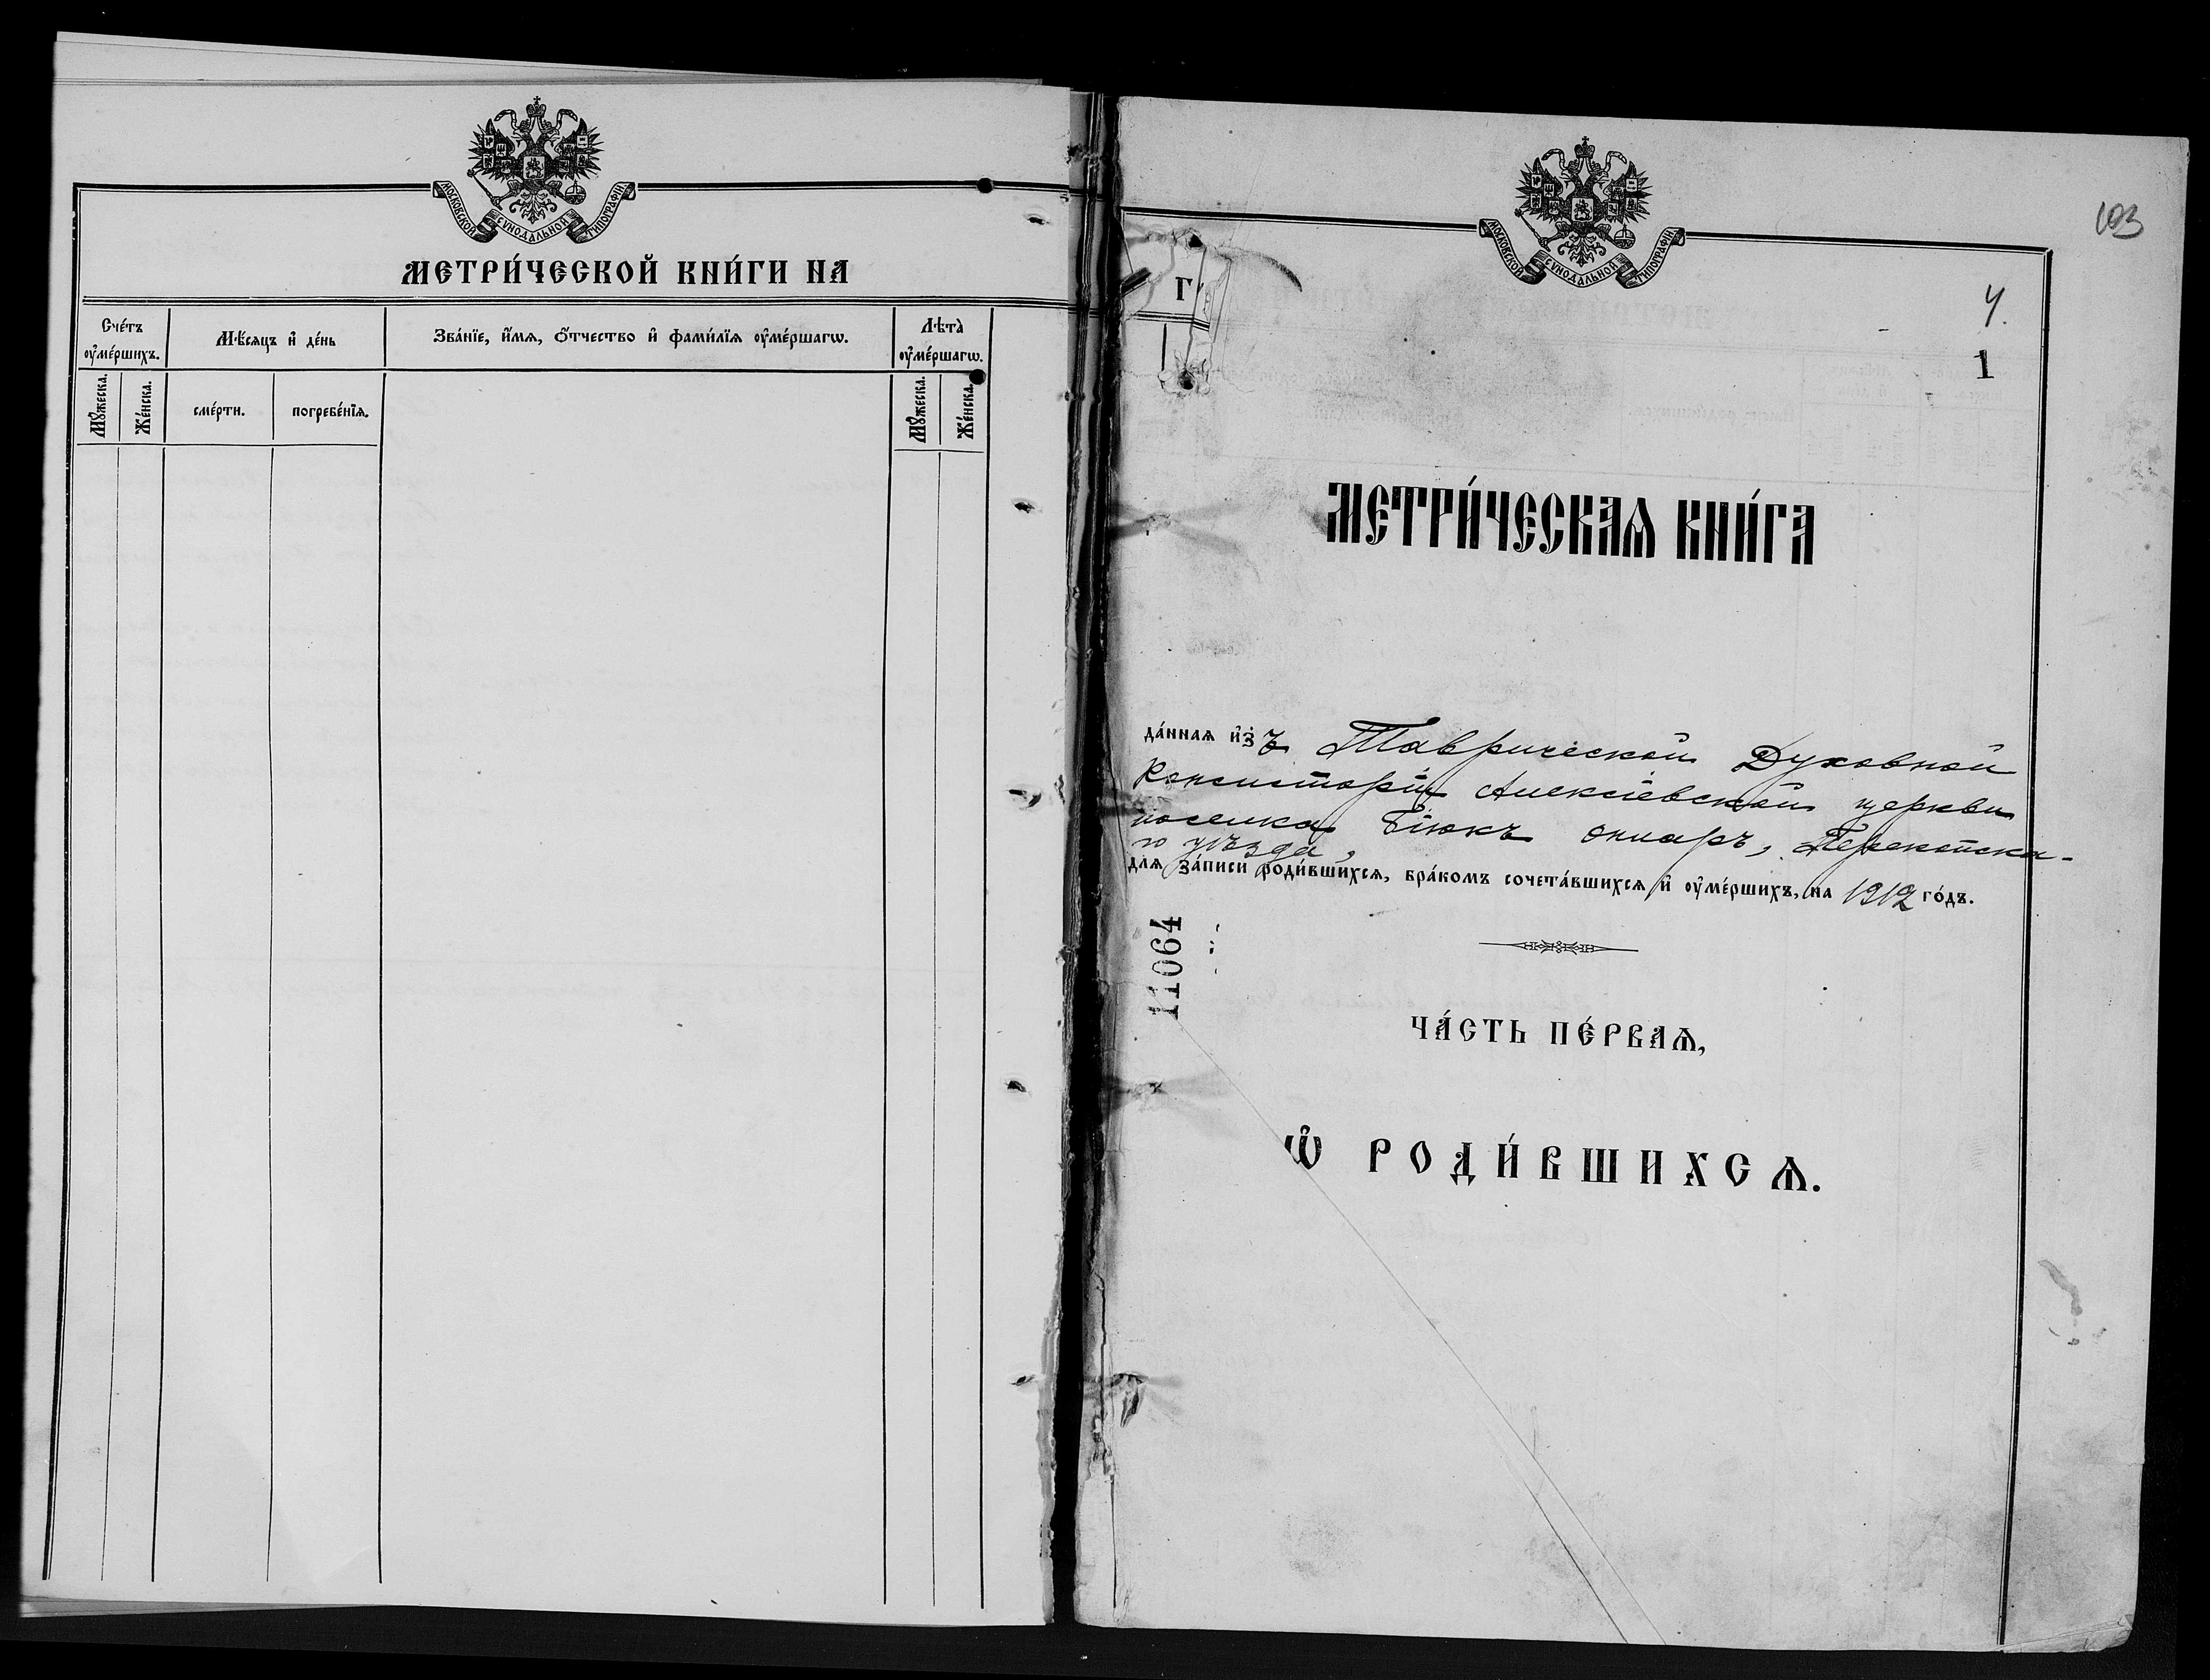 МОСКОВСКОЙ СѴНОДАЛЬНОЙ ТИПОГРАФІИ
МЕТРИ́ЧЕСКОЙ КНИ́ГИ НА
Сче́тъ оу҆ме́ршихъ.
Мѣ́сяцъ и҆ де́нь
Зва́нїе, и҆́мѧ, ѻ҆́тчество и҆ фами́лїѧ оу҆ме́ршагѡ.
Лѣ̑та оу҆ме́ршагѡ.
Мꙋ́жеска.
Же́нска.
сме́рти.
погребе́нїѧ.
Мꙋ́жеска.
Же́нска.
Г
МОСКОВСКОЙ СѴНОДАЛЬНОЙ ТИПОГРАФІИ
103
4.
1
МЕТРИ́ЧЕСКАѦ КНИ́ГА
да́ннаѧ и҆зъ Таврической Духовной
Консисторіи Алексіевской церкви
поселка Біюкъ Онларъ, Перекопска-
го уѣзда,
длѧ за́писи роди́вшихсѧ, бра́комъ сочета́вшихсѧ и҆ оу҆ме́ршихъ, на 1912 го́дъ.
11064
ЧА́СТЬ ПЕ́РВАѦ,
Ѽ РОДИ́ВШИХСѦ.